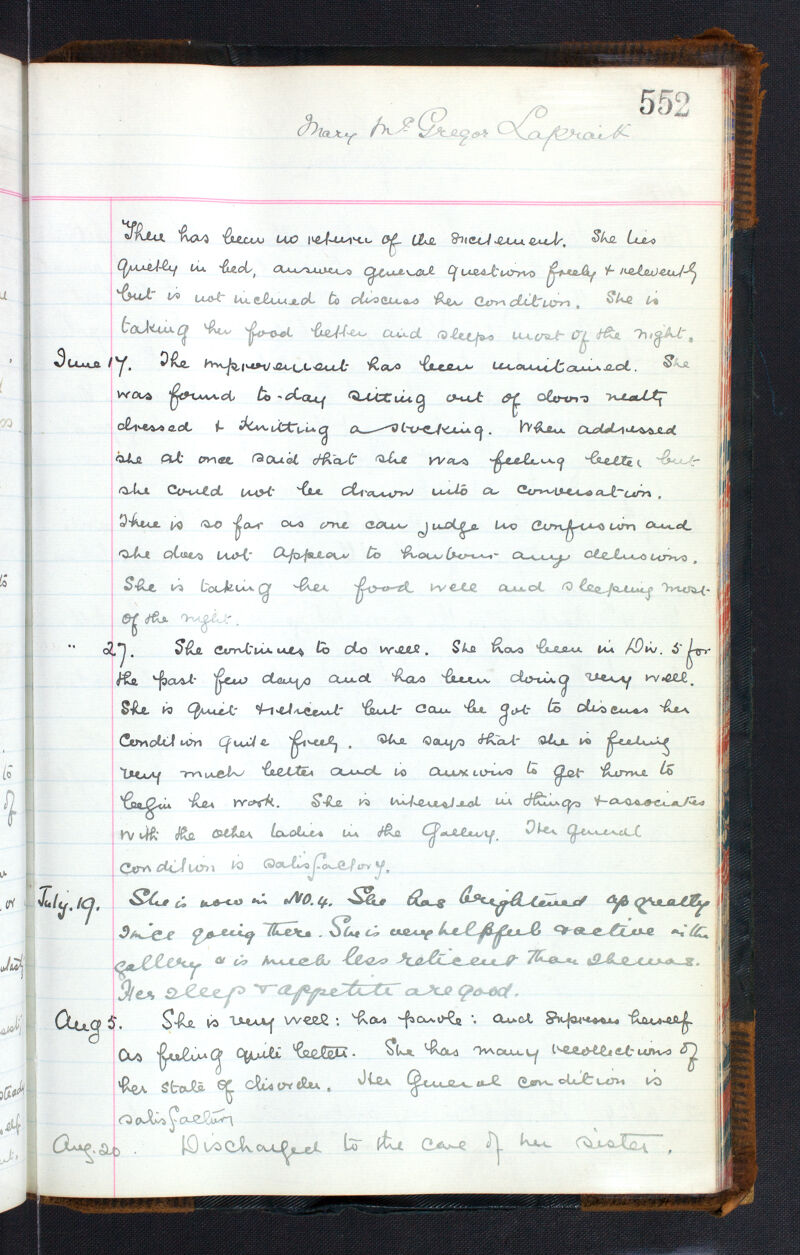 552
Mary McGregor Lapraik
There has been no return of the excitement. She lies
quietly in bed, answers general questions freely & relevently
but is not inclined to discuss her condition. She is
taking her food better and sleeps most of the night.
June 17. The improvement has been maintained. She
was found to-day sitting out of doors neatly
dressed & knitting a stocking. When addressed
she at once said that she was feeling better but
she could not be drawn into a conversation.
There is so far as one can judge no confusion and
she does not appear to harbour any delusions.
She is taking her food well and sleeping most
of the night.
" 27. She continues to do well. She has been in Div. 5 for
the past few days and has been doing very well.
She is quiet & reticent but can be got to discuss her
condition quite freely. She says that she is feeling
very much better and is anxious to get home to
begin her work. She is interested in things & associates
with the other ladies in the Gallery. Her general
condition is satisfactory.
July. 19. She is now in No. 4. She has brightened up greatly
since going there. She is very helpful & active in the
gallery & is much less reticent than she was.
Her sleep & appetite are good.
Aug 5. She is very well: has parole: and expresses herself
as feeling quite better. She has many recollections of
her state of disorder. Her General condition is
satisfactory
Aug. 20. Discharged to the care of her sister.